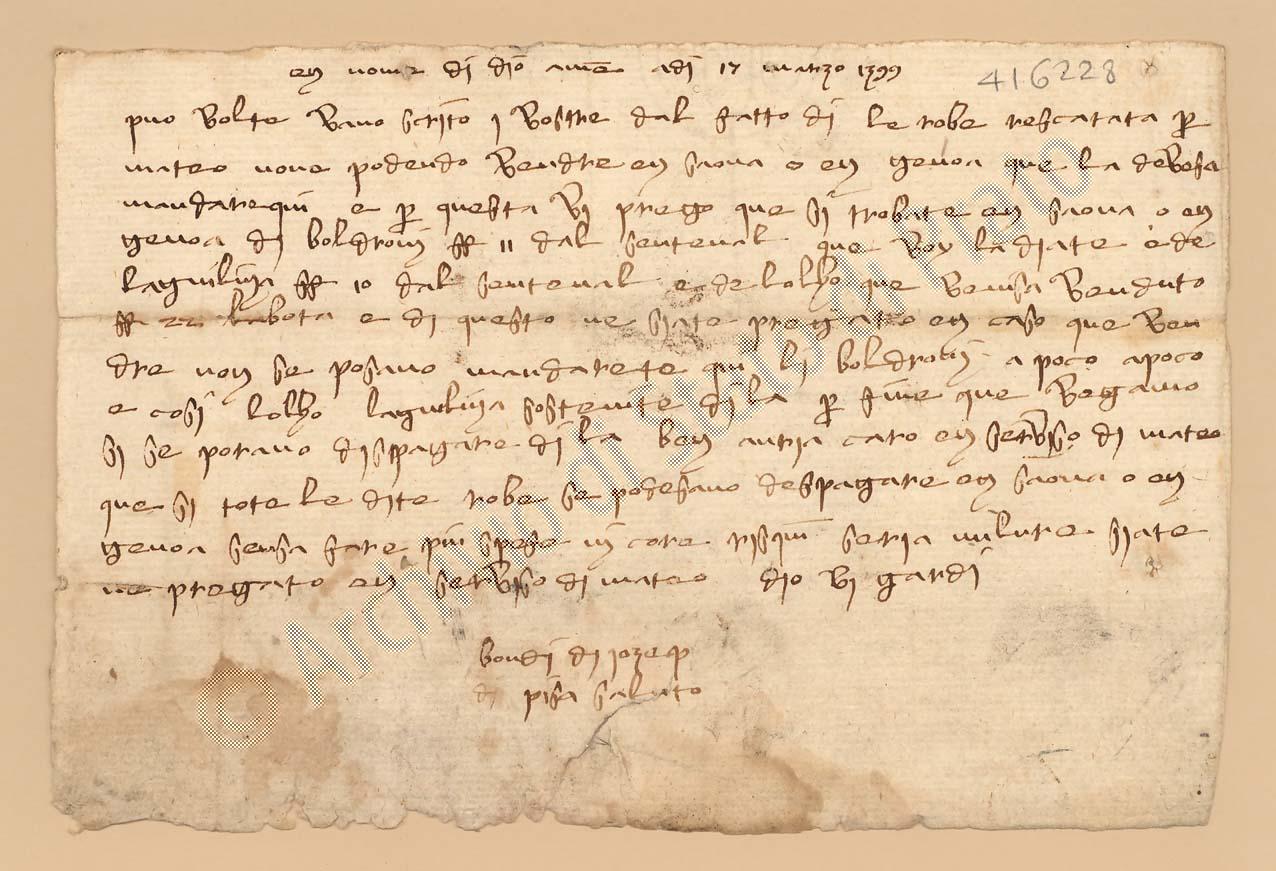 en nome di dio ame adi 17 marzo 1399
416228
puo volte vavo scrito i vostre dal fatto di le robe rescatata per
mateo none podendo vendre en saona o en genoa que la devesa
mandarequi e per questa vi prego que si trobate en saona o en
genoa di boldroni ff 11 dal sentenal que voy ladiate e de
laguilina ff 10 dal sentenal e de lolho que vensa venduto
ff 22 la bota e di questo ne siate pregatto en caso que ven
dre non se posano mandarete qui li boldroni a poco apoco
e cosi lolho laguilina sostenite di la per fine que vegamo
si se porano dispagare di la ben auria caro en serviso di mateo
que si tote le dite robe se podesano despagare en saona o en
genoa sensa fare piu spese in core risqui seria milure siate
ne pregato en serviso di mateo dio vi gardi
bondi di iozep
di pisa saluto
© Archivio di Stato di Prato